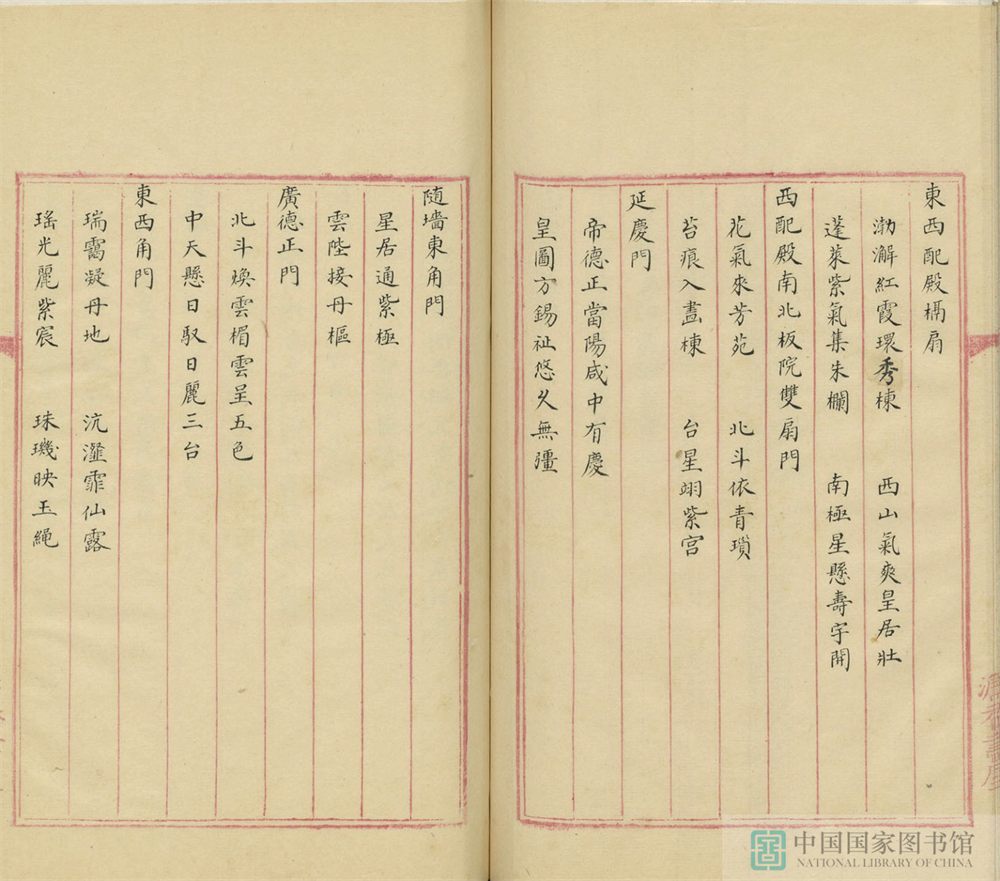 東西配殿槅扇
渤澥紅霞環秀棟　西山氣爽皇居壯
蓬萊紫氣集朱欄　南極星懸壽宇開
西配殿南北板院雙扇門
花氣來芳苑　北斗依青瑣
苔痕入畫棟　台星翊紫宫
延慶門
帝德正當陽咸中有慶
皇圖方錫祉悠久無疆
随墻東角門
星居通紫極
雲陛接丹樞
廣德正門
北斗煥雲楣雲呈五色
中天懸日馭日麗三台
東西角門
瑞靄凝丹地　沆瀣霏仙露
瑤光麗紫宸　珠璣映玉繩
中国国家图书馆
NATIONAL LIBRARY OF CHINA